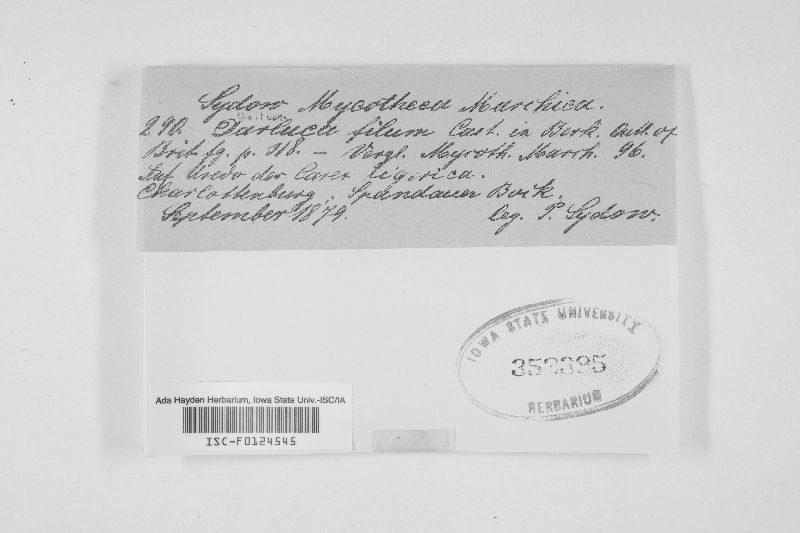 Sydow Mycotheca Marchica.
290. Darluca filum Cast. in Berk. Outl. of
Brit. fg. p. 318. — Vergl. Mycoth. March. 96.
Auf Uredo der Carex ligerica.
Charlottenburg, Spandauer Bock.
September 1879. leg. P. Sydow.
IOWA STATE UNIVERSITY
HERBARIUM
Ada Hayden Herbarium, Iowa State Univ.-ISC/IA
ISC-F0124545